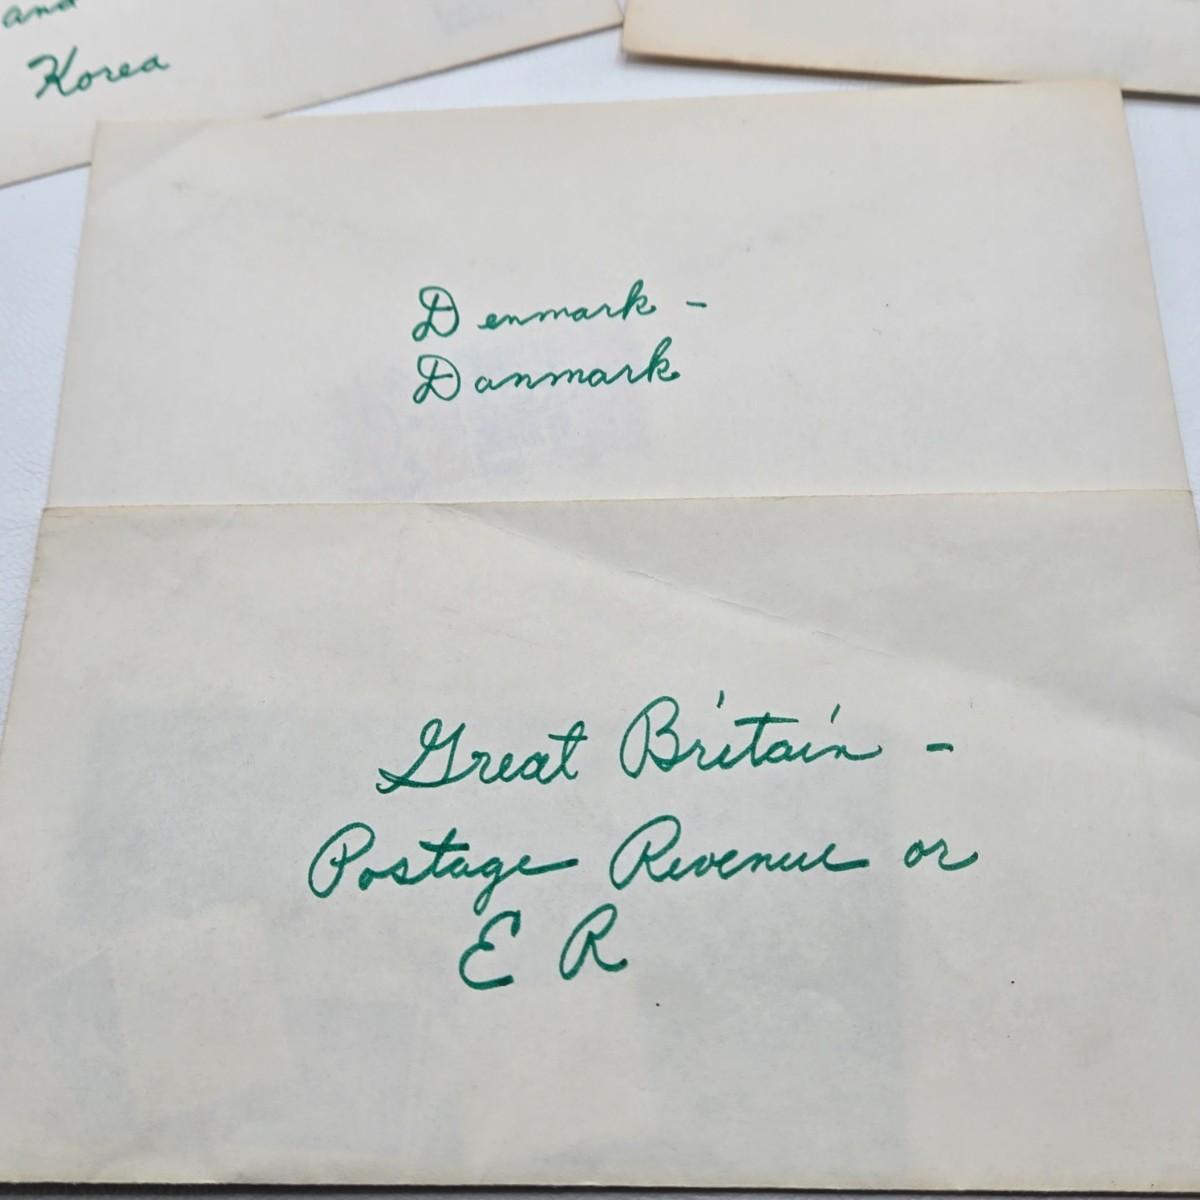 and
Korea
Denmark -
Danmark
Great Britain -
Postage Revenue or
E R